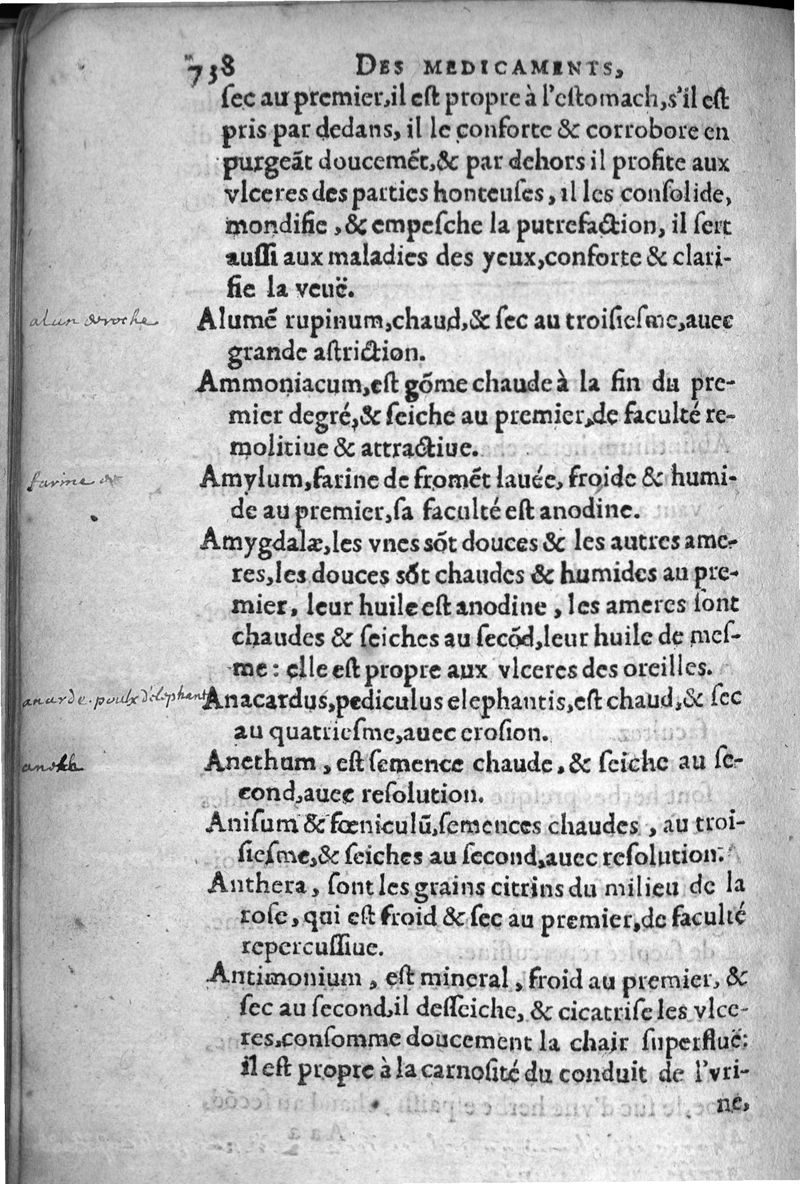 738 DES MEDICAMENTS,
ſec au premier, il eſt propre à l'eſtomach, s'il eſt
pris par dedans, il le conforte & corrobore en
purgeãt doucemẽt, & par dehors il profite aux
vlceres des parties honteuſes, il les conſolide,
mondifie, & empeſche la putrefaction, il ſert
auſſi aux maladies des yeux, conforte & clari-
fie la veuë.
alun de roche
Alumẽ rupinum, chaud, & ſec au troiſieſme, auec
grande aſtriction.
Ammoniacum, eſt gõme chaude à la fin du pre-
mier degré, & ſeiche au premier, de faculté re-
molitiue & attractiue.
farine de
Amylum, farine de fromẽt lauée, froide & humi-
de au premier, ſa faculté eſt anodine.
Amygdalæ, les vnes sõt douces & les autres ame-
res, les douces sõt chaudes & humides au pre-
mier, leur huile eſt anodine, les ameres ſont
chaudes & ſeiches au ſecõd, leur huile de meſ-
me : elle eſt propre aux vlceres des oreilles.
anarde. poulx d'elephant
Anacardus, pediculus elephantis, eſt chaud, & ſec
au quatrieſme, auec eroſion.
Anethum, eſt ſemence chaude, & ſeiche au ſe-
cond, auec reſolution.
Aniſum & fœniculũ, ſemences chaudes, au troi-
ſieſme, & ſeiches au ſecond, auec reſolution.
Anthera, ſont les grains citrins du milieu de la
roſe, qui eſt froid & ſec au premier, de faculté
repercuſſiue.
Antimonium, eſt mineral, froid au premier, &
ſec au ſecond, il deſſeiche, & cicatriſe les vlce-
res, conſomme doucement la chair ſuperfluë:
il eſt propre à la carnoſité du conduit de l'vri-
ne,